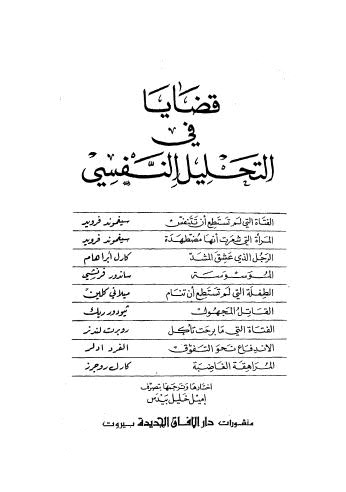 قضايا
في
التحليل النفسي
الفتاة التي لم تستطع أن تتنفس سيغموند فرويد
المرأة التي شعرت أنها مضطهدة سيغموند فرويد
الرجل الذي عشق المشد كارل أبراهام
الموسوسة ساندور فرنتشي
الطفلة التي لم تستطع أن تنام ميلاني كلاين
القاتل المجهول ثيودور ريك
الفتاة التي ما برحت تأكل روبرت لندنر
الاندفاع نحو التفوق الفرد ادلر
المراهقة الغاضبة كارل روجرز
اختارها وترجمها بتصرف
إميل خليل بيدس
منشورات دار الآفاق الجديدة بيروت